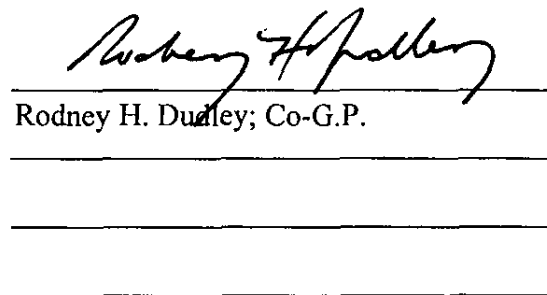 Rodney H Dudley
Rodney H. Dudley; Co-G.P.